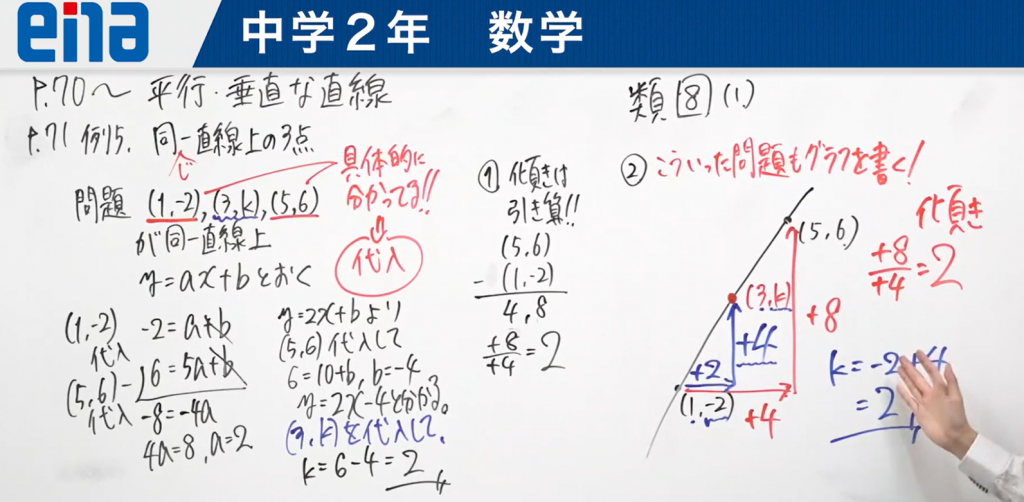 ena 中学2年 数学
P.70〜 平行・垂直な直線
P.71 例15. 同一直線上の3点
じ
問題 (1,-2), (3,k), (5,6)
が同一直線上
y=ax+bとおく
具体的に
分かってる!!
代入
(1,-2) -2=a+b
代入
(5,6) -) 6=5a+b
代入 -8=-4a
4a=8, a=2
y=2x+bより
(5,6)代入して
6=10+b, b=-4
y=2x-4と分かる。
(3,k)を代入して、
k=6-4=2
① 傾きは
引き算!!
(5,6)
- (1,-2)
4,8
+8/+4=2
類図8(1)
② こういった問題もグラフを書く!
(5,6)
(3,k)
+8
+4
+2
(1,-2)
+4
傾き
+8/+4=2
k=-2+4
=2